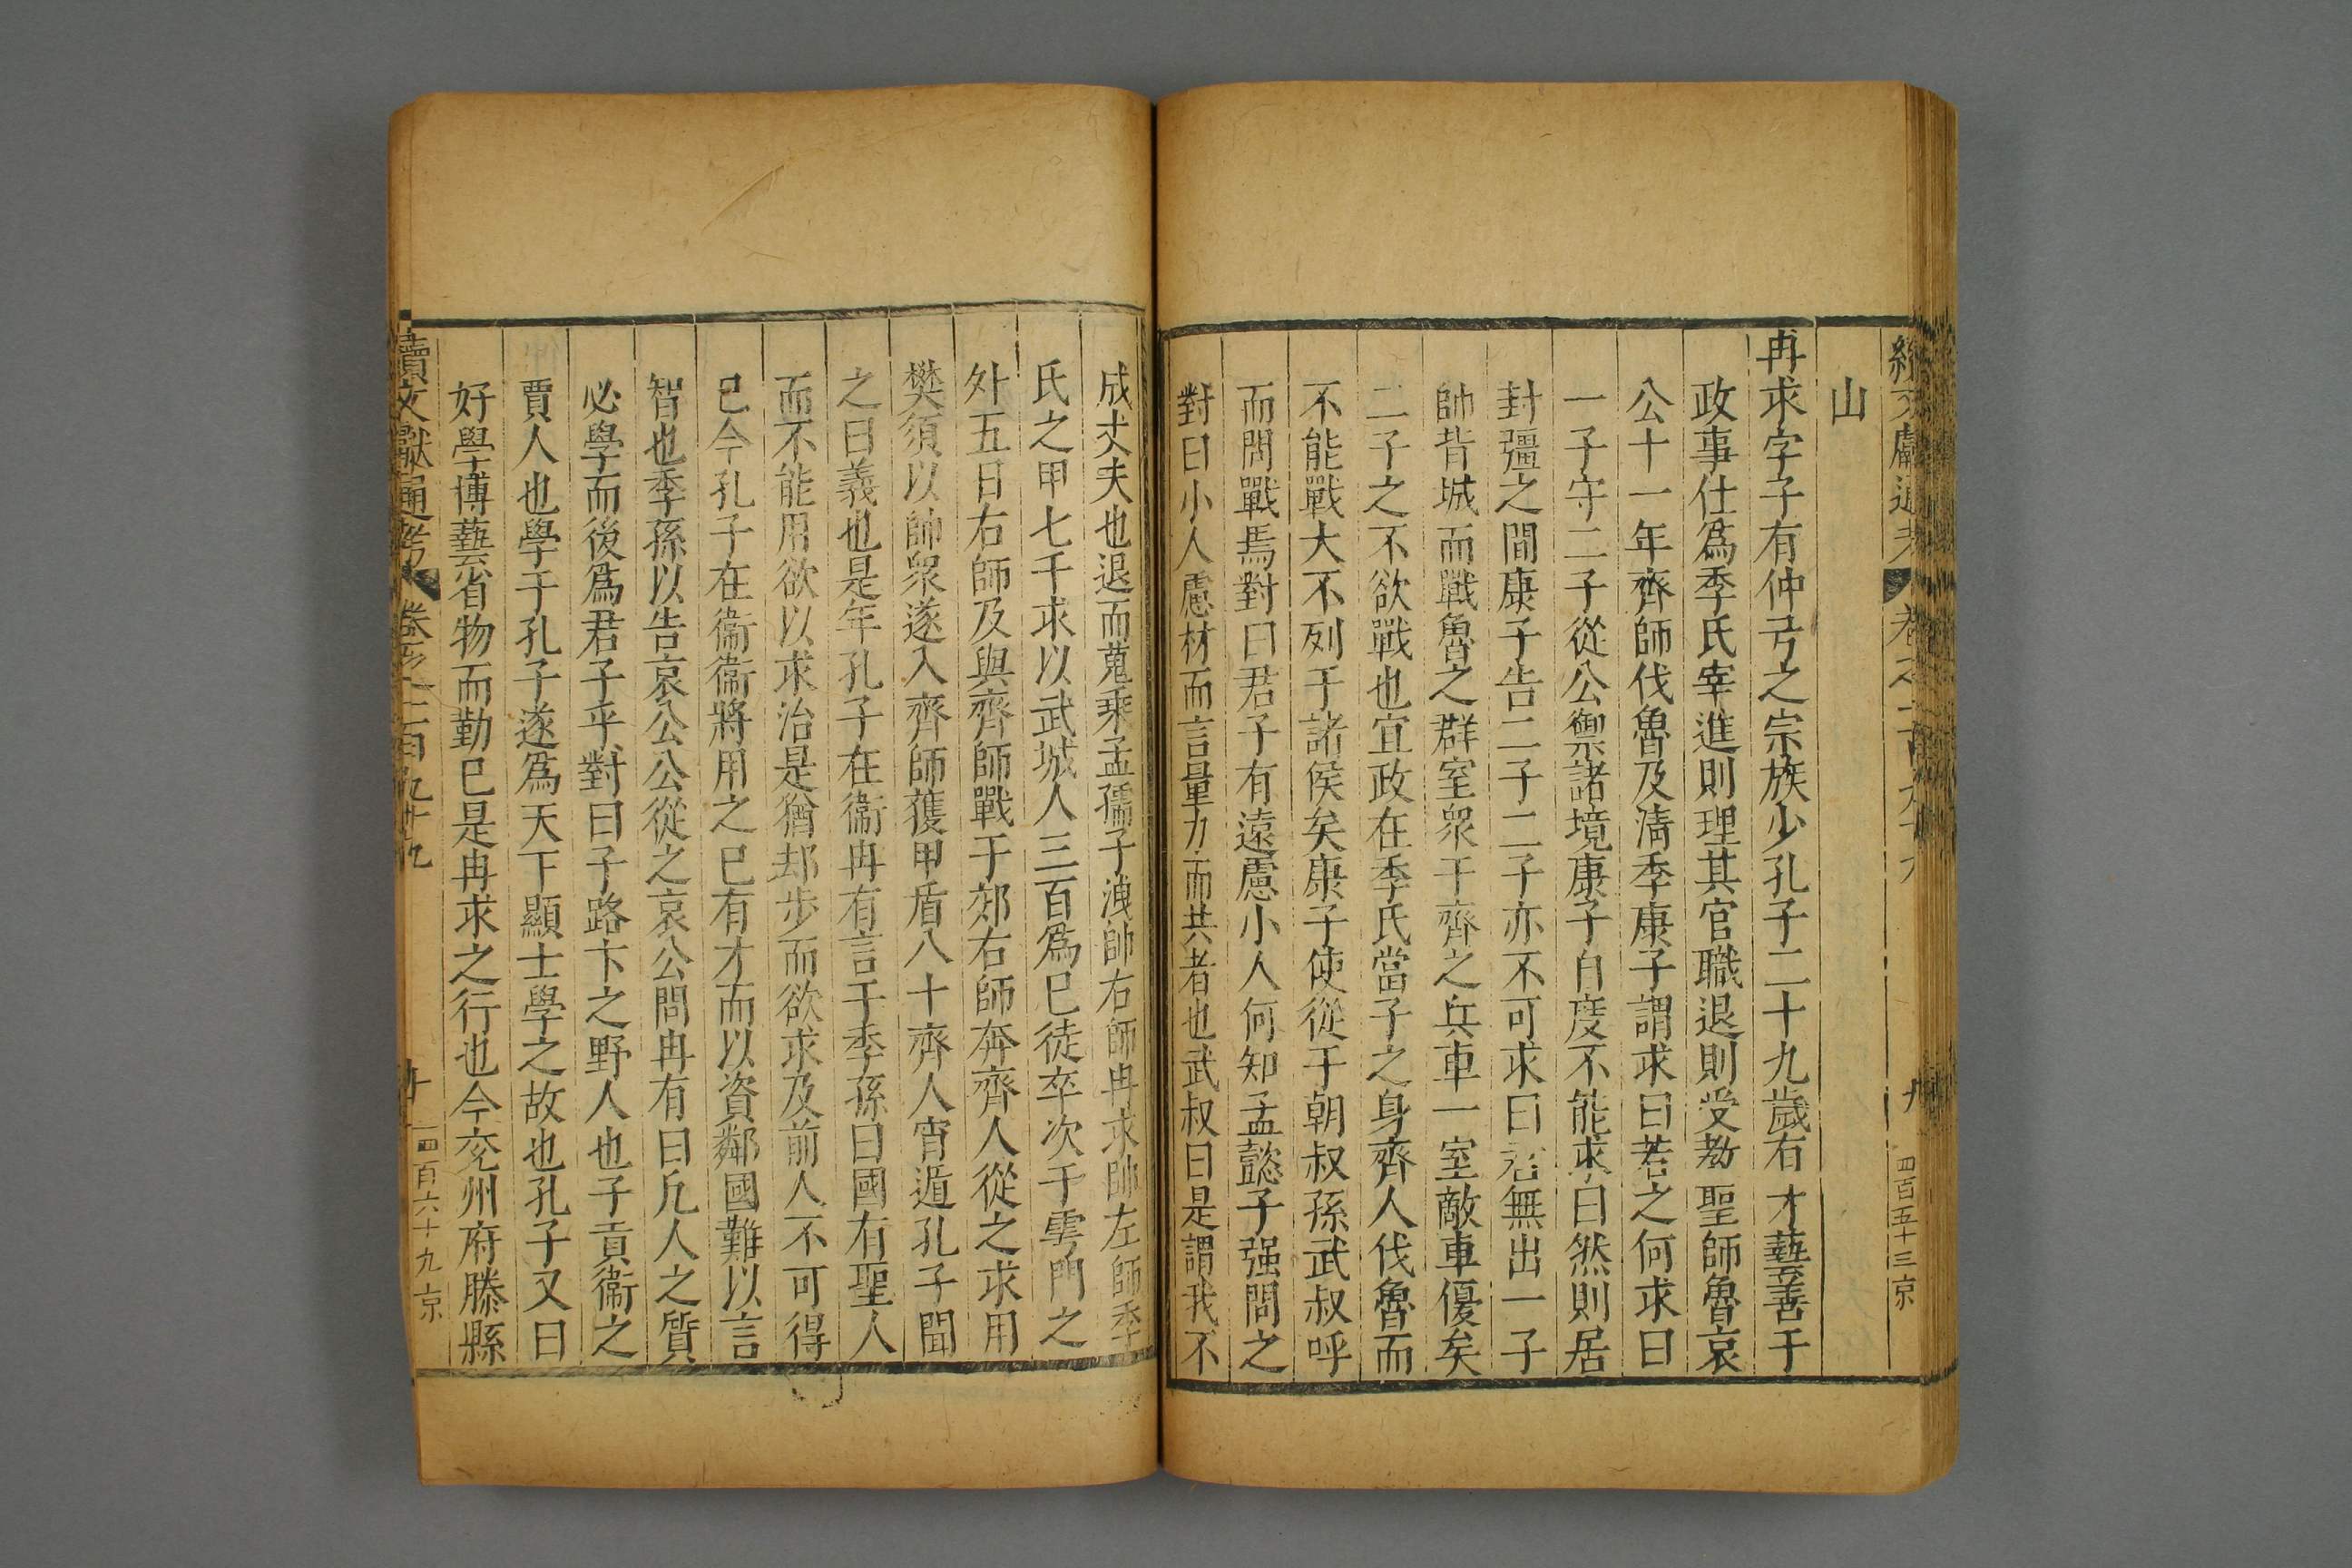 山
冉求字子有仲弓之宗族少孔子二十九歲有才藝善于
政事仕爲季氏宰進則理其官職退則受教聖師魯哀
公十一年齊師伐魯及清季康子謂求曰若之何求曰
一子守二子從公禦諸境康子自度不能求曰然則居
封疆之間康子告二子二子亦不可求曰若無出一子
帥背城而戰魯之群室衆于齊之兵車一室敵車優矣
二子之不欲戰也宜政在季氏當子之身齊人伐魯而
不能戰大不列于諸侯矣康子使從于朝叔孫武叔呼
而問戰焉對曰君子有遠慮小人何知孟懿子强問之
對曰小人慮材而言量力而共者也武叔曰是謂我不
成丈夫也退而蒐乘孟孺子洩帥右師冉求帥左師季
氏之甲七千求以武城人三百爲巳徒卒次于雩門之
外五日右師及與齊師戰于郊右師奔齊人從之求用
樊須以帥衆遂入齊師獲甲盾八十齊人宵遁孔子聞
之曰義也是年孔子在衞冉有言于季孫曰國有聖人
而不能用欲以求治是猶却步而欲求及前人不可得
已今孔子在衞衞將用之已有才而以資鄰國難以言
智也季孫以告哀公公從之哀公問冉有曰凡人之質
必學而後爲君子乎對曰子路卞之野人也子貢衞之
賈人也學于孔子遂爲天下顯士學之故也孔子又曰
好學博藝省物而勤巳是冉求之行也今兖州府滕縣
續文獻通考 卷之二百九十九
四百五十三京
四百六十九京